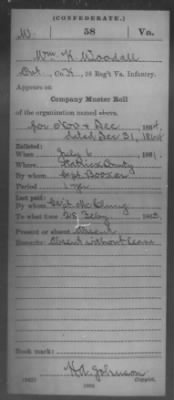 (CONFEDERATE.)
W 58 Va.
Wm K Woodall
Pvt., Co. K, 58 Reg't Va. Infantry.
Appears on
Company Muster Roll
of the organization named above,
for Nov & Dec, 1864.
dated Dec 31, 1864
Enlisted:
When July 6, 1861
Where Patrick County
By whom Capt Booker
Period 1 yr
Last paid:
By whom Capt
To what time 28 Feby, 1863.
Present or absent Absent
Remarks: Absent without leave
Book mark:
Johnson
(642) Copyist.